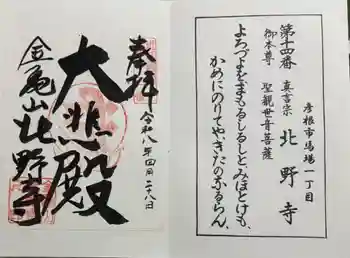 第十四番
彦根市馬場一丁目
真言宗 北野寺
御本尊 聖観世音菩薩
よろづよをまもるしるしと、みほとけも、
かめにのりてやきたのなるらん、
奉拝
令和八年四月二十八日
大悲殿
金亀山北野寺